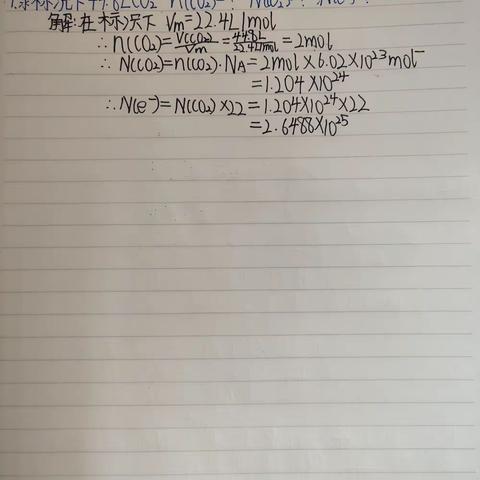 1.求标况下44.8LCO₂ n(CO₂)=? N(CO₂)=? N(e⁻)=?
解:在标况下 Vm=22.4L/mol
∴n(CO₂)=V(CO₂)/Vm=44.8L/22.4L/mol=2mol
∴N(CO₂)=n(CO₂)·NA=2mol×6.02×10²³mol⁻
=1.204×10²⁴
∴N(e⁻)=N(CO₂)×22=1.204×10²⁴×22
=2.6488×10²⁵